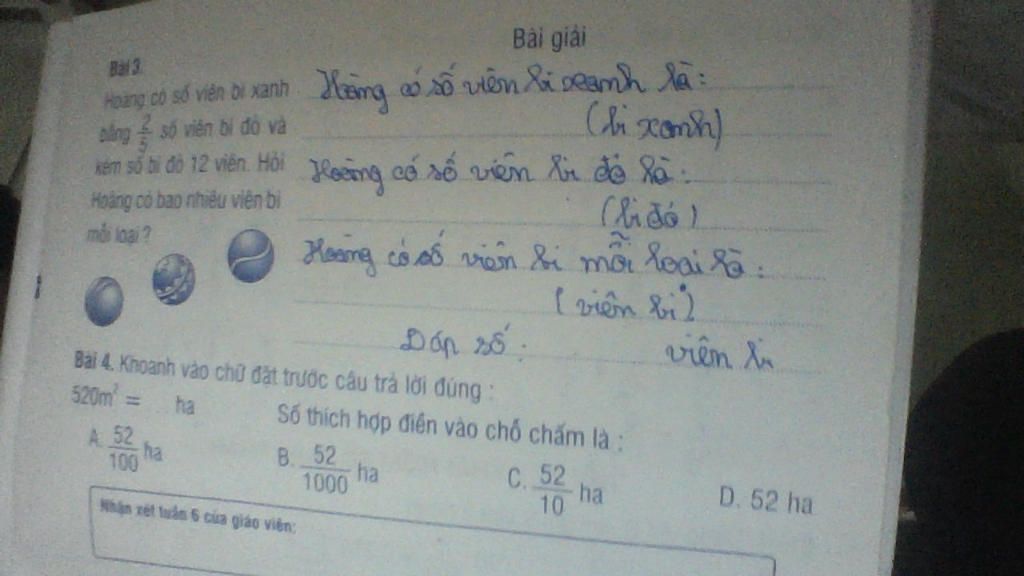 Bài giải
Bài 3.
Hoàng có số viên bi xanh
bằng 2/5 số viên bi đỏ và
kém số bi đỏ 12 viên. Hỏi
Hoàng có bao nhiêu viên bi
mỗi loại ?
Hoàng có số viên bi xanh là :
(bi xanh)
Hoàng có số viên bi đỏ là :
(bi đỏ)
Hoàng có số viên bi mỗi loại là :
(viên bi)
Đáp số : viên bi
Bài 4. Khoanh vào chữ đặt trước câu trả lời đúng :
520m² = ha
Số thích hợp điền vào chỗ chấm là :
A. 52/100 ha B. 52/1000 ha C. 52/10 ha D. 52 ha
Nhận xét tuần 6 của giáo viên: